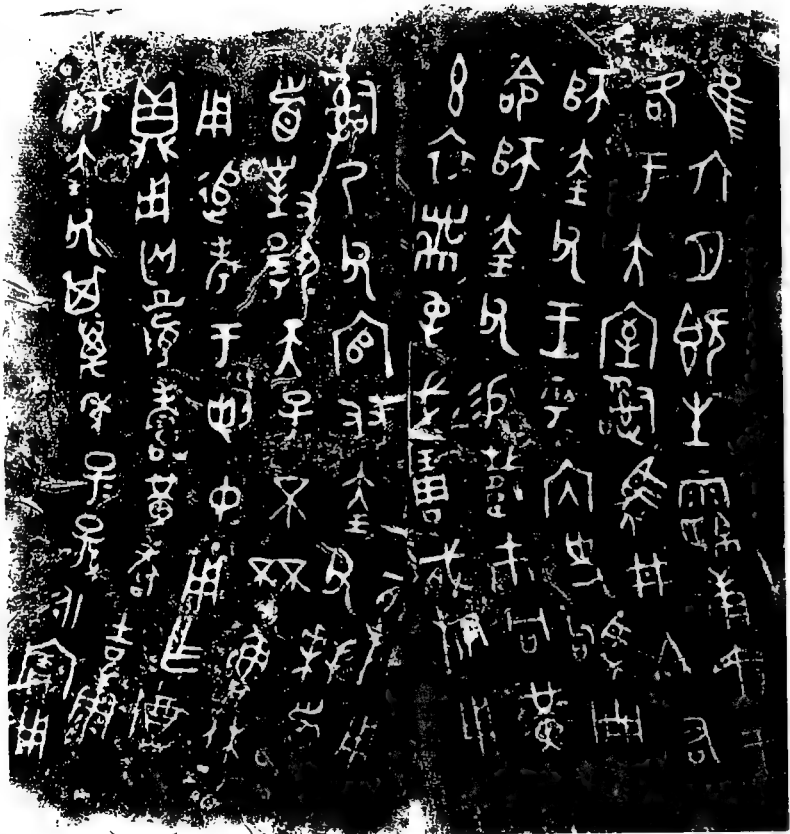 隹六月既生霸庚寅王
各于大室𤔲馬井白右
師奎父王乎内史駒冊
命師奎父易巿冋黃
玄衣黹屯戈琱㦸旂用
𤔲乃父官友奎父拜𩒨
首對揚天子不杯魯休
用追考于剌中用乍尊
鼎用匄眉壽黃耇吉康
師奎父其萬年子子孫孫永寶用